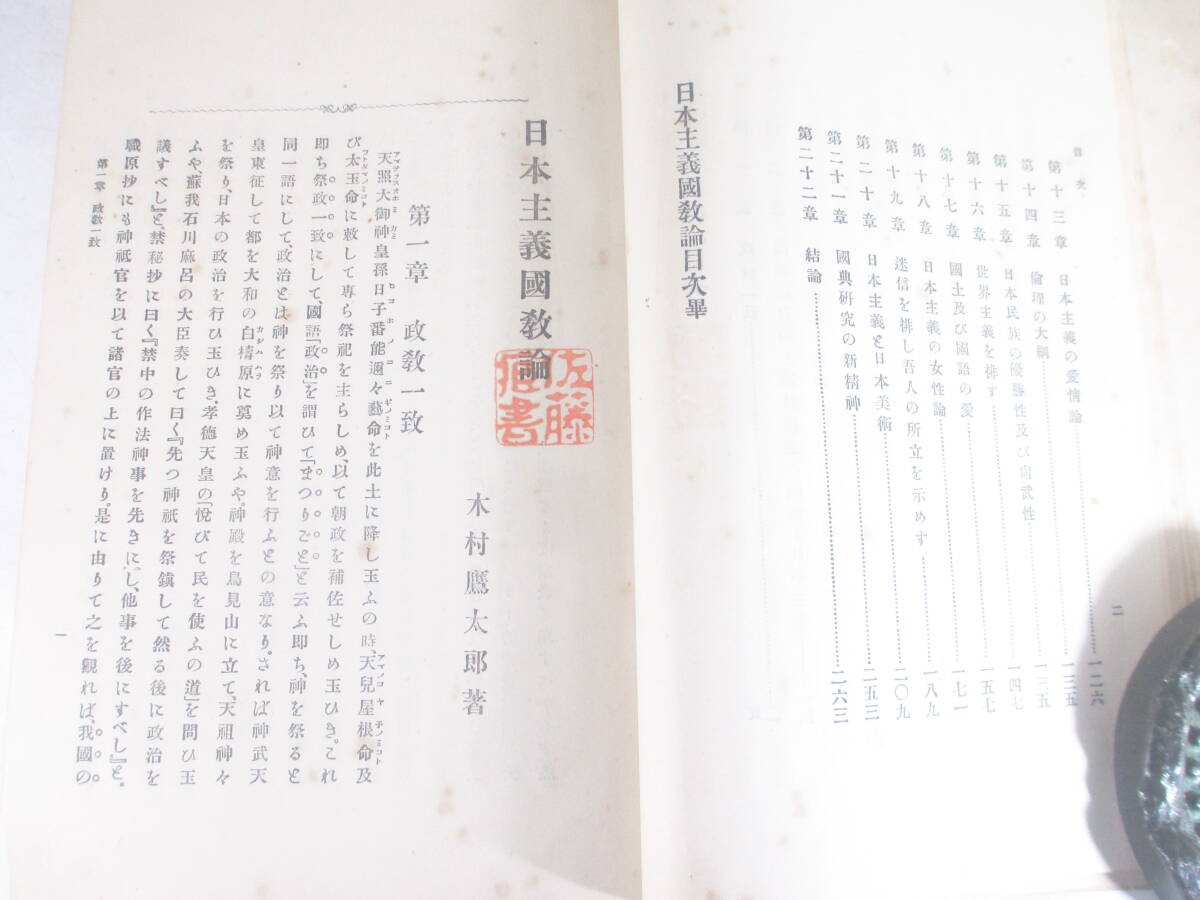 目次
第十三章 日本主義の愛情論……一二六
第十四章 倫理の大綱……一三五
第十五章 日本民族の優勝性及び尙武性……一四七
第十六章 世界主義を排す……一五七
第十七章 國土及び國語の愛……一七一
第十八章 日本主義の女性論……一八九
第十九章 迷信を排し吾人の所立を示めす……二〇九
第二十章 日本主義と日本美術……二五三
第二十一章 國典硏究の新精神
第二十二章 結論……二六三
日本主義國敎論目次畢
二
日本主義國敎論
木村鷹太郎著
佐藤
書
第一章 政敎一致
天照大御神皇孫日子番能邇々藝命を此土に降し玉ふの時、天兒屋根命及
び太玉命に敕して專ら祭祀を主らしめ、以て朝政を補佐せしめ玉ひき。これ
即ち祭政一致にして、國語「政治」を謂ひて「まつりごと」と云ふ即ち、神を祭ると
同一語にして、政治とは神を祭り以て神意を行ふとの意なり。されば神武天
皇東征して都を大和の白檮原に奠め玉ふや。神殿を鳥見山に立て、天祖神々
を祭り、日本の政治を行ひ玉ひき、孝德天皇の「悅びて民を使ふの道」を問ひ玉
ふや、蘇我石川麻呂の大臣奏して曰く『先つ神祇を祭鎭して然る後に政治を
議すべし』と、禁秘抄に曰く『禁中の作法神事を先きにし、他事を後にすべし』と、
職原抄にも神祇官を以て諸官の上に置けり。是に由りて之を觀れば、我國の
第一章 政敎一致
一